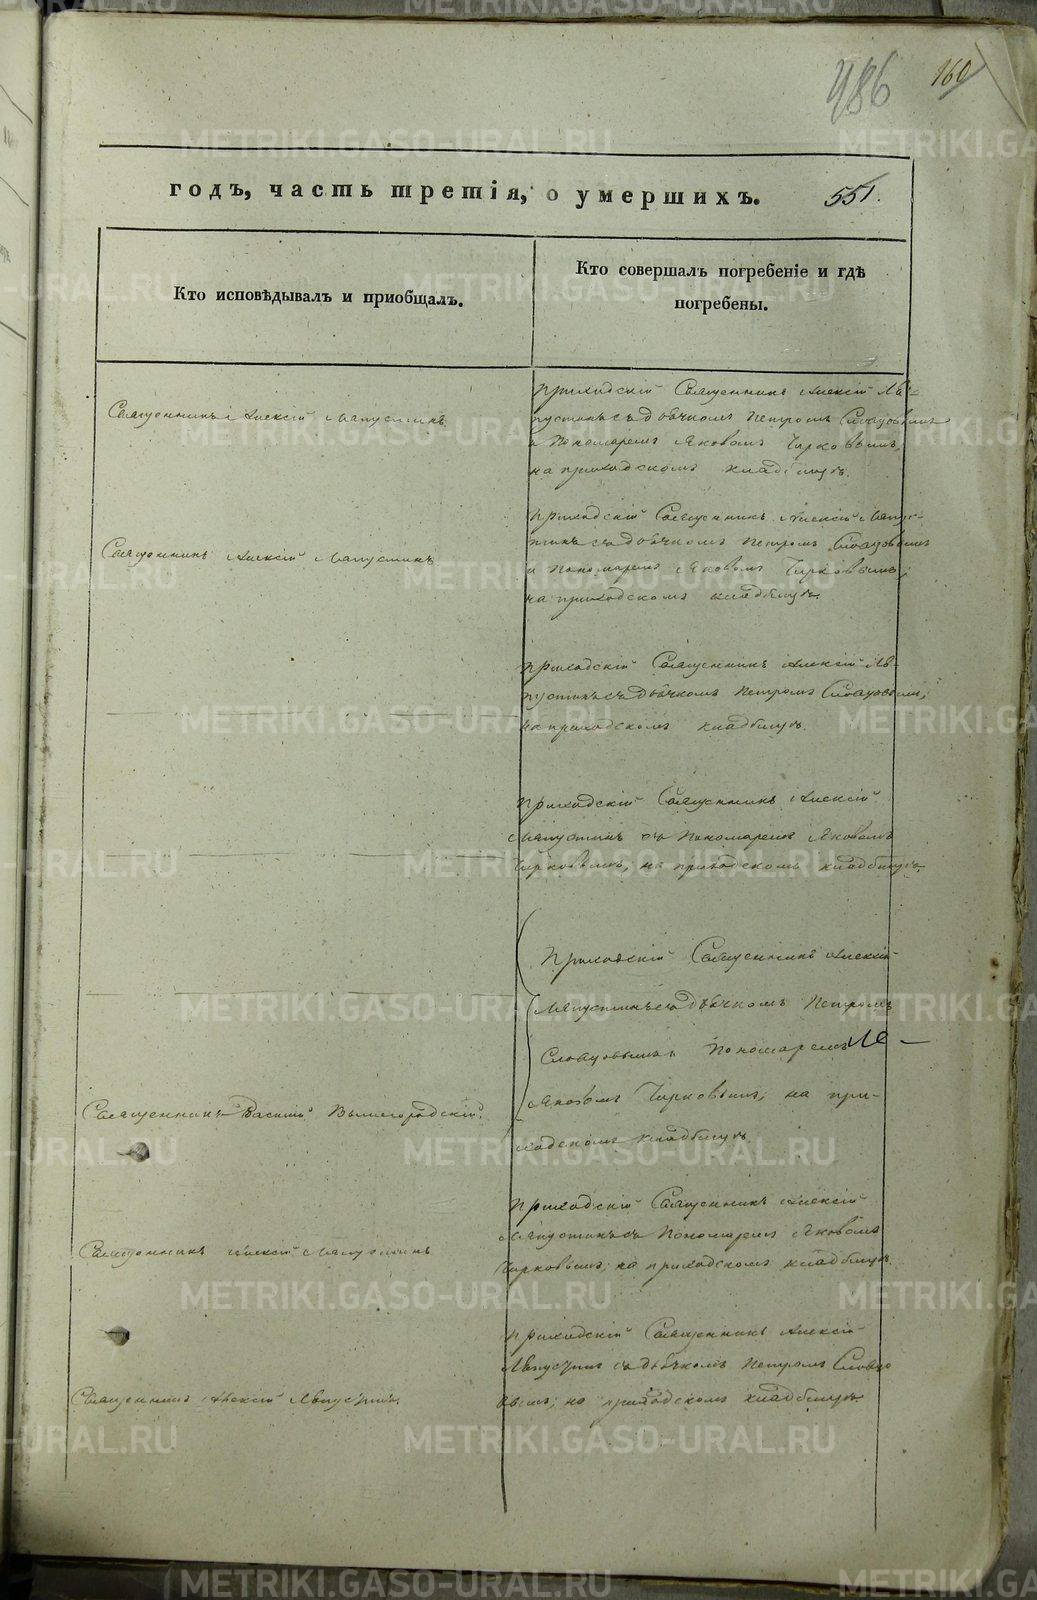 486
160
годъ, часть третія, о умершихъ.
551.
Кто исповѣдывалъ и пріобщалъ.
Кто совершалъ погребеніе и гдѣ
погребены.
Священникъ Алексій Ляпустинъ
Приходскій Священникъ Алексій Ля-
пустинъ съ дьячкомъ Петромъ Словцовымъ
и Пономаремъ Яковомъ Чирковымъ,
на приходскомъ кладбищѣ.
Священникъ Алексій Ляпустинъ
Приходскій Священникъ Алексій Ляпус-
тинъ съ дьячкомъ Петромъ Словцовымъ
и Пономаремъ Яковомъ Чирковымъ,
на приходскомъ кладбищѣ.
Приходскій Священникъ Алексій Ля-
пустинъ съ дьячкомъ Петромъ Словцовымъ,
на приходскомъ кладбищѣ.
Приходскій Священникъ Алексій
Ляпустинъ съ Пономаремъ Яковомъ
Чирковымъ, на приходскомъ кладбищѣ.
Приходскій Священникъ Алексій
Ляпустинъ съ дьячкомъ Петромъ
Словцовымъ Пономаремъ
Яковомъ Чирковымъ, на при-
ходскомъ кладбищѣ.
Священникъ Василій Вышегородскій.
Приходскій Священникъ Алексій
Ляпустинъ съ Пономаремъ Яковомъ
Чирковымъ, на приходскомъ кладбищѣ.
Священникъ Алексій Ляпустинъ
Приходскій Священникъ Алексій
Ляпустинъ съ дьячкомъ Петромъ Словцо
вымъ, на приходскомъ кладбищѣ.
Священникъ Алексій Ляпустинъ.
METRIKI.GASO-URAL.RU